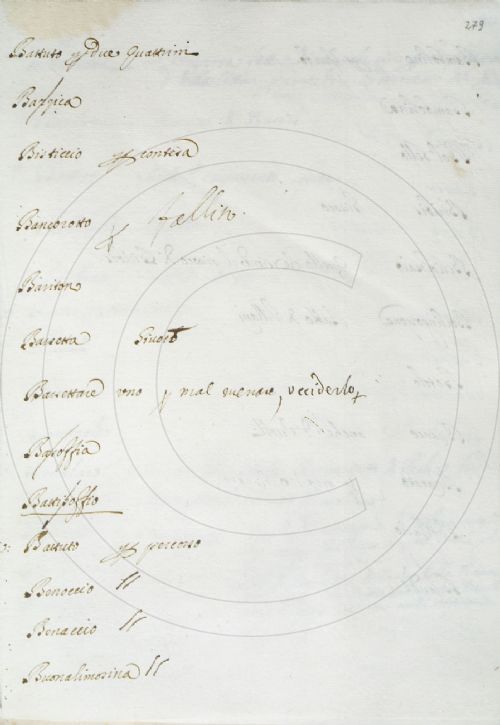 279
Battuto p due quattrini
Bazzica
Bisticcio p contesa
Bancorotto p fallito
Bariton
Bassetta Giuoco
Bassettare uno p mal menare, ucciderlo
Basoffia
Battisoffio
Battuto p percosso
Benoccio //
Benaccio //
Buonalimosina //